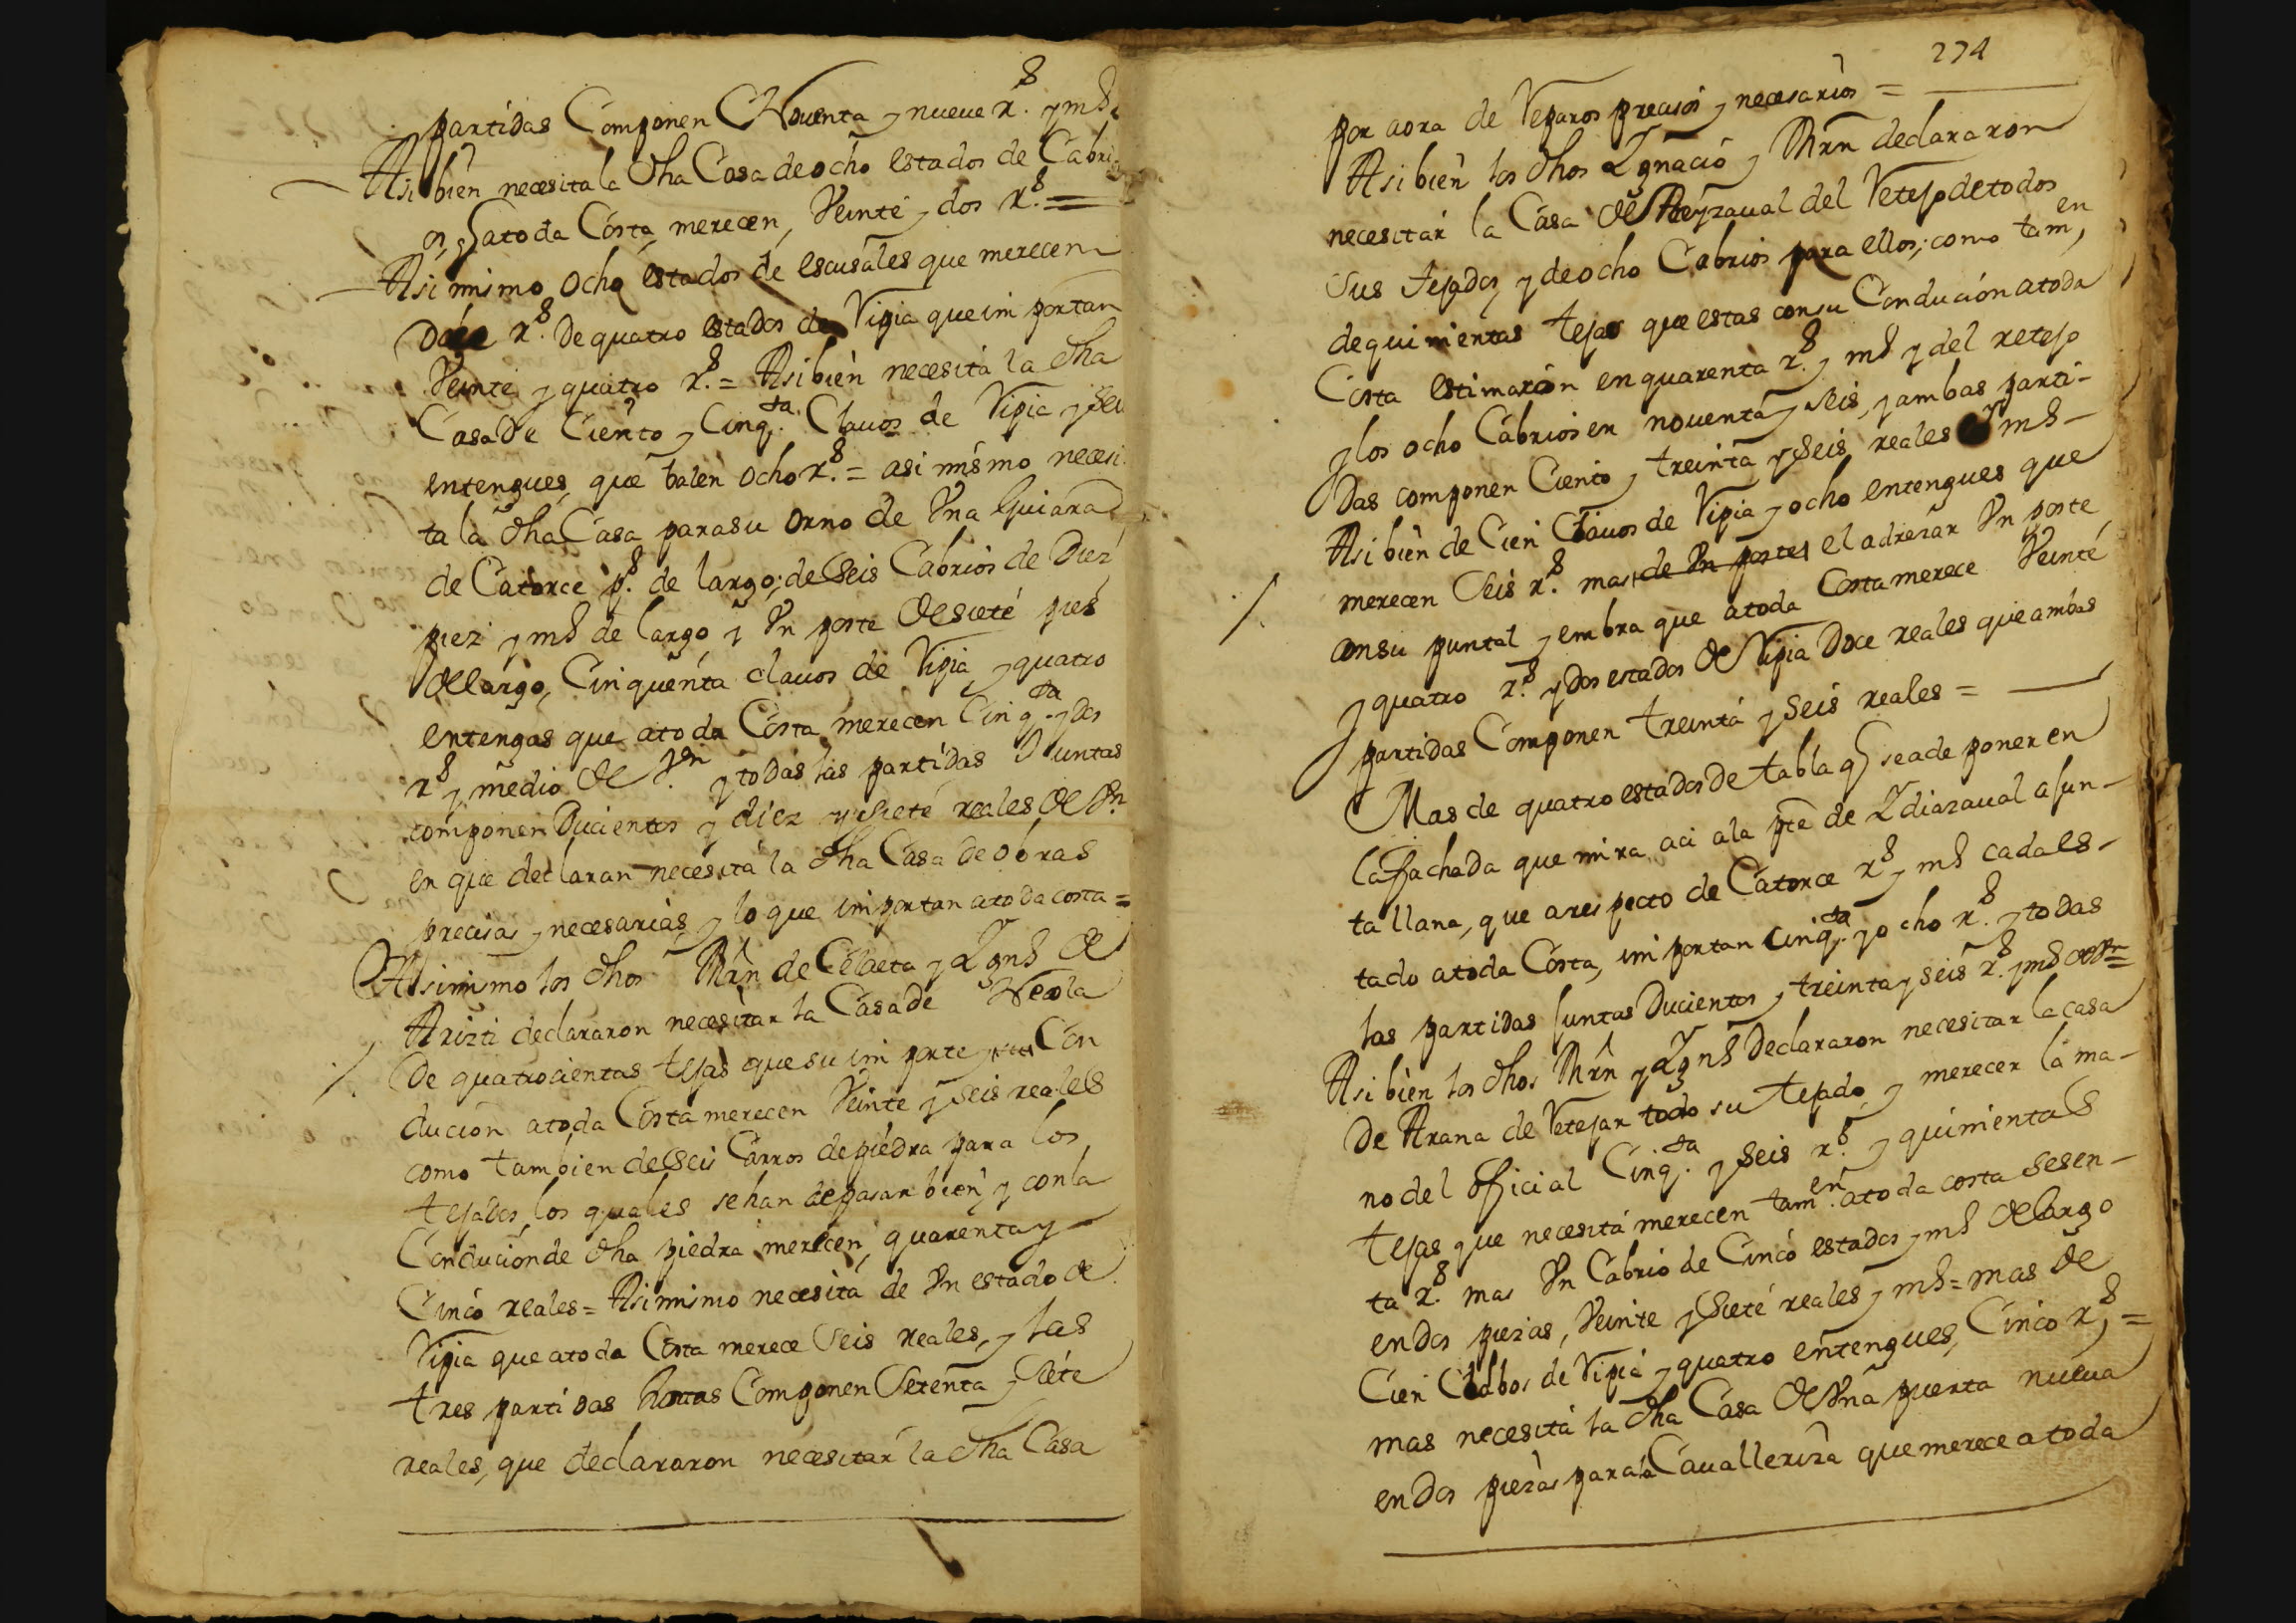 partidas Componen Nouenta y nueue Rs. y mo.
Asi bien necesita la dha Casa de ocho estados de Cabri
os, q atoda Costa merecen, Veinte y dos Rs. =
Asi mismo ocho estados de escusales que merecen
Doce Rs. De quatro estados de Vipia que im portan
Veinte y quatro Rs. = Asi bien necesita la dha
Casa de Ciento y Cinqta. Clauos de Vipia y Seis
entengues, que balen ocho Rs. = asi mismo necesi
ta la dha Casa para su orno de Vna Guiara
de Catorce ps. de largo; de Seis Cabrios de Diez
piez y mo de largo, y Vn poste de siete pies
de largo, Cinquenta clauos de Vipia, y quatro
entengas que atoda Costa merecen Cinqta. y dos
Rs. y medio de Von. y todas las partidas Juntas
componen Ducientos y diez y siete reales de Vn.
en que declaran necesita la dha Casa de obras
precisas y necesarias, y lo que importan atoda costa =
Asi mismo los dhos Mrn de Celaeta y Ygno de
Arizti declararon necesitar la Casa de
De quatrocientas tejas que su im porte y Con
ducion atoda Costa merecen Veinte y Seis reales
como tambien de Seis Carros de piedra para los
tejados, los quales se han de pasar bien, y con la
Conducion de dha piedra merecen, quarenta y
Cinco reales = Asi mismo necesita de Vn estado de
Vipia que atoda Costa merece Seis reales, y las
tres partidas Juntas Componen Setenta y Siete
reales, que declararon necesitar la dha Casa
274
por aora de Reparos precisos y necesarios =
Asi bien los dhos Ygnacio y Mrn declararon
necesitar la Casa de Reyzaual del Retejo de todos
sus tejados, y de ocho Cabrios para ellos; como tamen
de quinientas tejas que estas con su Conducion atoda
Costa estimaron en quarenta Rs. y mo y del retejo
y los ocho Cabrios en nouenta y seis, y ambas parti-
das componen Ciento y treinta y Seis reales y mo -
Asi bien de Cien Clauos de Vipia y ocho entengues que
merecen Seis Rs. mas de Vn postes el adrezar Vn poste
con su puntal y embra que atoda Costa merece Veinte
y quatro Rs. y Dos estados de Vipia Doce reales que ambas
partidas Componen treinta y Seis reales =
Mas de quatro estados de tabla q se a de poner en
la fachada que mira aci ala pte de Ydiazaual a Jun-
ta llana, que a respecto de Catorce Rs. y mo cada es-
tado atoda Costa, im portan cinqta. y ocho Rs. y todas
las partidas Juntas Ducientos y treinta y seis Rs. y mo de Vn =
Asi bien los dhos Mrn y Ygno Declararon necesitar la casa
De Arana de Retejar todo su tejado, y merecer la ma-
no del oficial Cinqta. y Seis Rs. y quinientas
tejas que necesita merecen tamen. atoda costa sesen-
ta Rs. mas Vn Cabrio de Cinco estados y mo de largo
en dos piezas, Veinte y Siete reales y mo = mas de
Cien Clabos de Vipia y quatro entengues, Cinco Rs. =
mas necesita la dha Casa de Vna puerta nueua
en Dos piezas para la Caualleriza que merece atoda